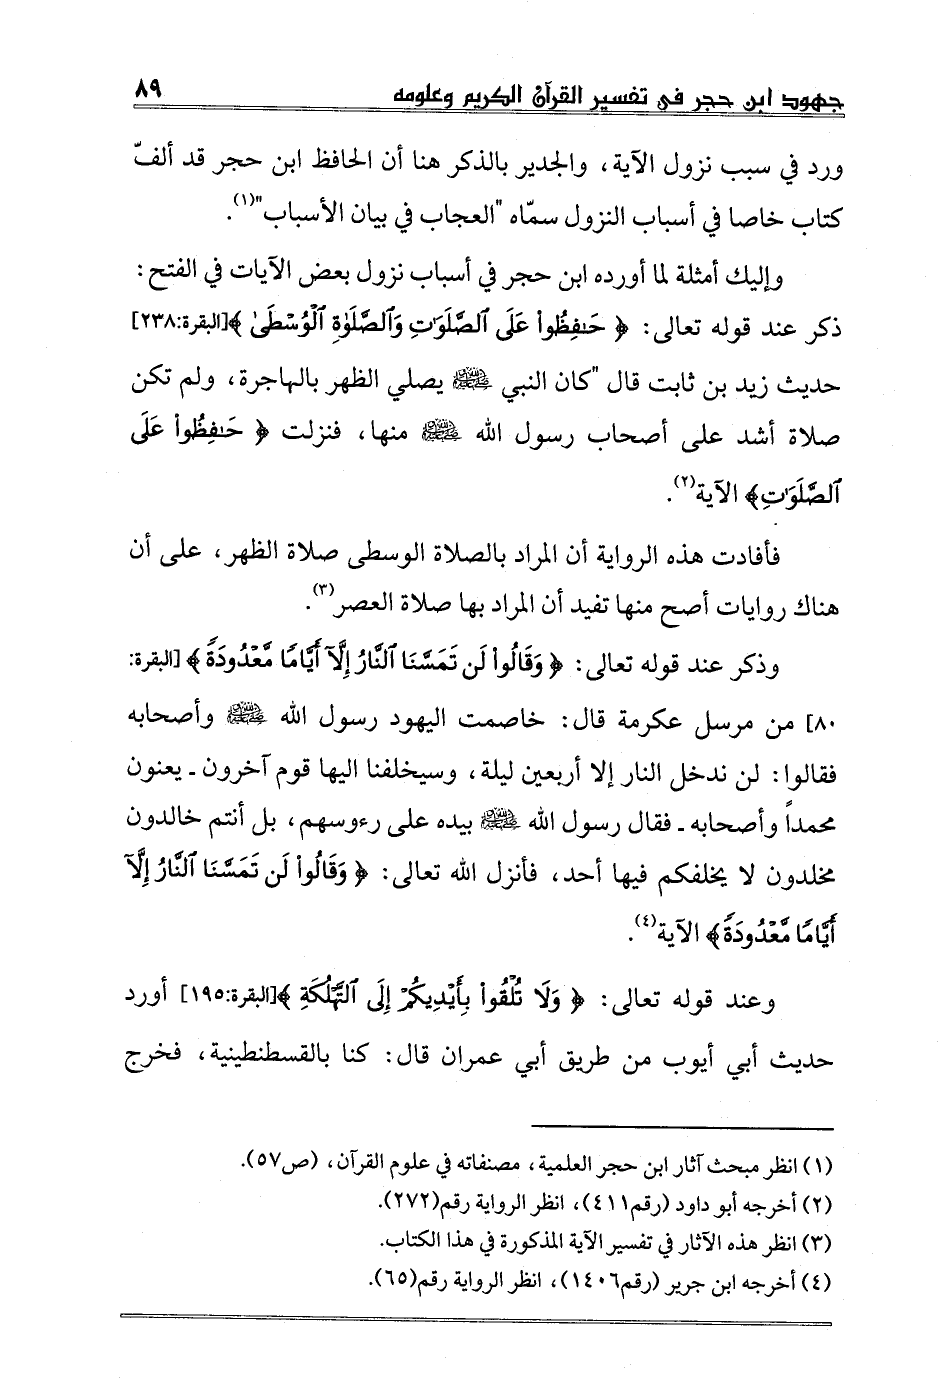 جهود ابن حجر في تفسير القرآن الكريم وعلومه ٨٩
ورد في سبب نزول الآية، والجدير بالذكر هنا أن الحافظ ابن حجر قد ألفّ
كتاب خاصا في أسباب النزول سمّاه "العجاب في بيان الأسباب"(١).
وإليك أمثلة لما أورده ابن حجر في أسباب نزول بعض الآيات في الفتح:
ذكر عند قوله تعالى: ﴿ حَـٰفِظُوا۟ عَلَى ٱلصَّلَوَٰتِ وَٱلصَّلَوٰةِ ٱلْوُسْطَىٰ ﴾[البقرة:٢٣٨]
حديث زيد بن ثابت قال "كان النبي ﷺ يصلي الظهر بالهاجرة، ولم تكن
صلاة أشد على أصحاب رسول الله ﷺ منها، فنزلت ﴿ حَـٰفِظُوا۟ عَلَى
ٱلصَّلَوَٰتِ﴾ الآية(٢).
فأفادت هذه الرواية أن المراد بالصلاة الوسطى صلاة الظهر، على أن
هناك روايات أصح منها تفيد أن المراد بها صلاة العصر(٣).
وذكر عند قوله تعالى: ﴿ وَقَالُوا۟ لَن تَمَسَّنَا ٱلنَّارُ إِلَّآ أَيَّامًا مَّعْدُودَةً ﴾ [البقرة:
٨٠] من مرسل عكرمة قال: خاصمت اليهود رسول الله ﷺ وأصحابه
فقالوا: لن ندخل النار إلا أربعين ليلة، وسيخلفنا اليها قوم آخرون ـ يعنون
محمداً وأصحابه ـ فقال رسول الله ﷺ بيده على رءوسهم، بل أنتم خالدون
مخلدون لا يخلفكم فيها أحد، فأنزل الله تعالى: ﴿ وَقَالُوا۟ لَن تَمَسَّنَا ٱلنَّارُ إِلَّآ
أَيَّامًا مَّعْدُودَةً﴾ الآية(٤).
وعند قوله تعالى: ﴿ وَلَا تُلْقُوا۟ بِأَيْدِيكُمْ إِلَى ٱلتَّهْلُكَةِ ﴾[البقرة:١٩٥] أورد
حديث أبي أيوب من طريق أبي عمران قال: كنا بالقسطنطينية، فخرج
(١) انظر مبحث آثار ابن حجر العلمية، مصنفاته في علوم القرآن، (ص٥٧).
(٢) أخرجه أبو داود (رقم٤١١)، انظر الرواية رقم(٢٧٢).
(٣) انظر هذه الآثار في تفسير الآية المذكورة في هذا الكتاب.
(٤) أخرجه ابن جرير (رقم١٤٠٦)، انظر الرواية رقم(٦٥).